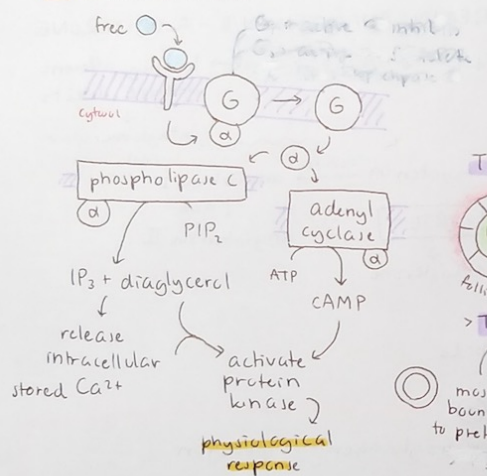 free
G
G
α
cytosol
α
phospholipase C
α
PIP₂
adenyl
cyclase
α
ATP
cAMP
IP₃ + diaglycerol
release
intracellular
stored Ca²⁺
activate
protein
kinase
physiological
response
T
> T
bound